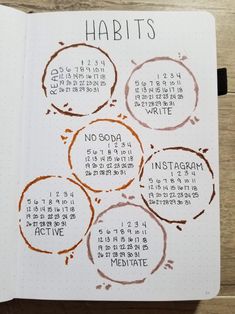 HABITS
READ
1 2 3 4
5 6 7 8 9 10 11
12 13 14 15 16 17 18
19 20 21 22 23 24 25
26 27 28 29 30 31
1 2 3 4
5 6 7 8 9 10 11
12 13 14 15 16 17 18
19 20 21 22 23 24 25
26 27 28 29 30 31
WRITE
NO SODA
1 2 3 4
5 6 7 8 9 10 11
12 13 14 15 16 17 18
19 20 21 22 23 24 25
26 27 28 29 30 31
INSTAGRAM
1 2 3 4
5 6 7 8 9 10 11
12 13 14 15 16 17 18
19 20 21 22 23 24 25
26 27 28 29 30 31
1 2 3 4
5 6 7 8 9 10 11
12 13 14 15 16 17 18
19 20 21 22 23 24 25
26 27 28 29 30 31
ACTIVE
1 2 3 4
5 6 7 8 9 10 11
12 13 14 15 16 17 18
19 20 21 22 23 24 25
26 27 28 29 30 31
MEDITATE